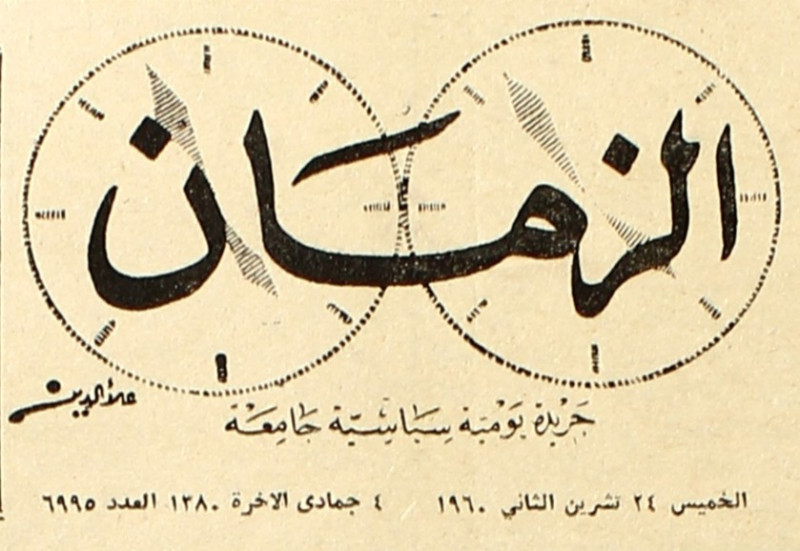 الزمان
علاءالدين
جَريدة يَوْميَة سِيَاسِيّة جَامِعَة
الخميس ٢٤ تشرين الثاني ١٩٦٠ ٤ جمادى الاخرة ١٣٨٠ العدد ٦٩٩٥